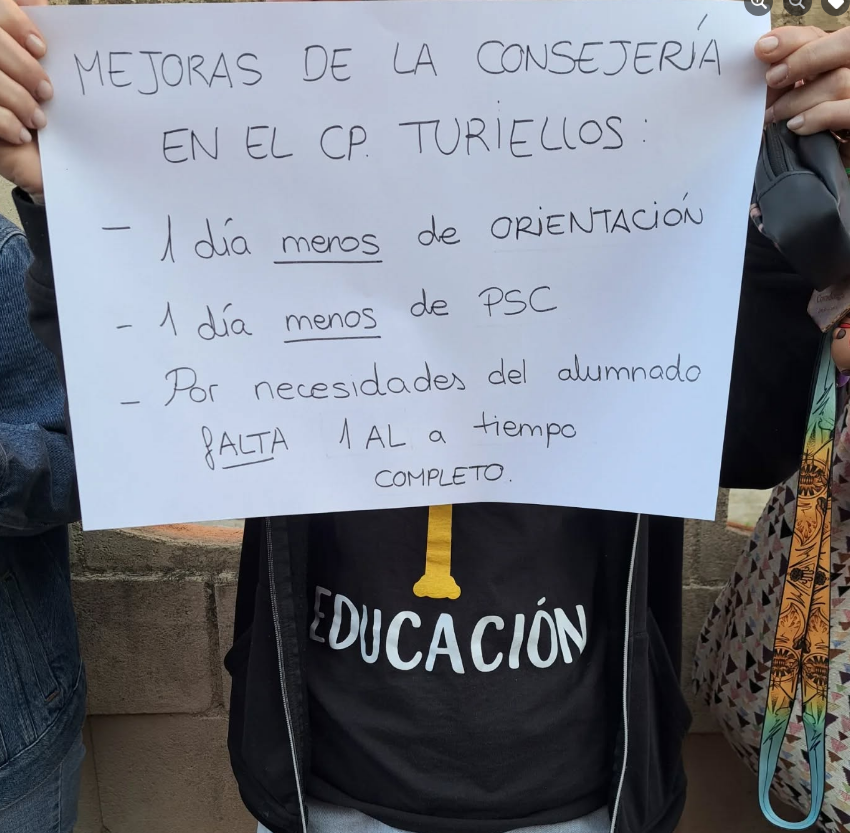 MEJORAS DE LA CONSEJERÍA
EN EL CP. TURIELLOS:
- 1 día menos de ORIENTACIÓN
- 1 día menos de PSC
- Por necesidades del alumnado
fALTA 1 AL a tiempo
COMPLETO.
EDUCACIÓN